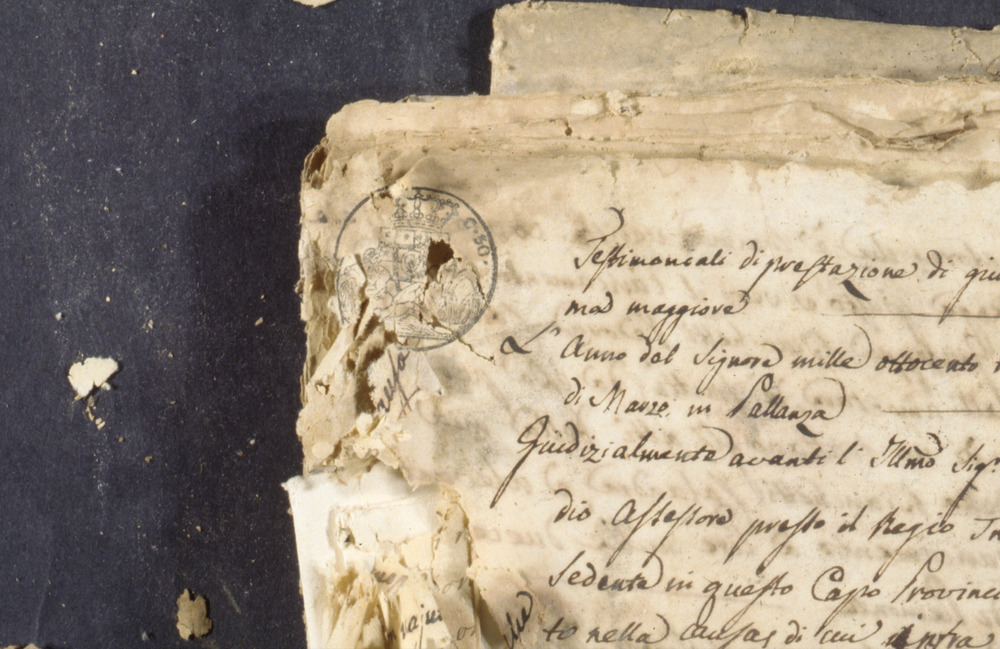 C. 50.
Testimoniali di prestazione di giu
ma maggiore
L'Anno del Signore mille ottocento
di Marzo in Pallanza
Giudizialmente avanti l'Illmo Sigr
dio Assessore presso il Regio
Sedente in questo Capo Provinci
to nella Causa di cui infra